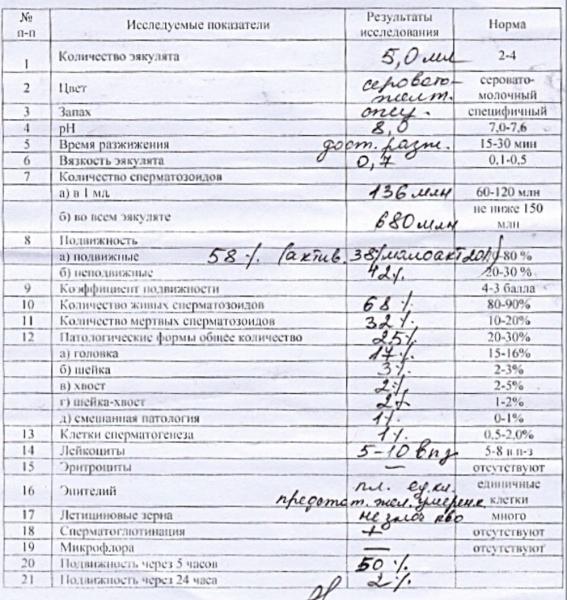 № п-п Исследуемые показатели Результаты исследования Норма
1 Количество эякулята 5,0 мл 2-4
2 Цвет серовато-желт. серовато-молочный
3 Запах спец. специфичный
4 pH 8,0 7,0-7,6
5 Время разжижения дост. разж. 15-30 мин
6 Вязкость эякулята 0,7 0,1-0,5
7 Количество сперматозоидов
а) в 1 мл. 136 млн 60-120 млн
б) во всем эякуляте 680 млн не ниже 150 млн
8 Подвижность
а) подвижные 58% (актив. 38% малоакт 20%) -80 %
б) неподвижные 42% 20-30 %
9 Коэффициент подвижности 4-3 балла
10 Количество живых сперматозоидов 68% 80-90%
11 Количество мертвых сперматозоидов 32% 10-20%
12 Патологические формы общее количество 25% 20-30%
а) головка 17% 15-16%
б) шейка 3% 2-3%
в) хвост 2% 2-5%
г) шейка-хвост 2% 1-2%
д) смешанная патология 1% 0-1%
13 Клетки сперматогенеза 1% 0,5-2,0%
14 Лейкоциты 5-10 в пз 5-8 в п-з
15 Эритроциты — отсутствуют
16 Эпителий пл. ед. кл. предстат. жел. умеренн единичные клетки
17 Летициновые зерна незнач кво много
18 Сперматоглютинация + отсутствуют
19 Микрофлора — отсутствуют
20 Подвижность через 5 часов 50%
21 Подвижность через 24 часа 2%